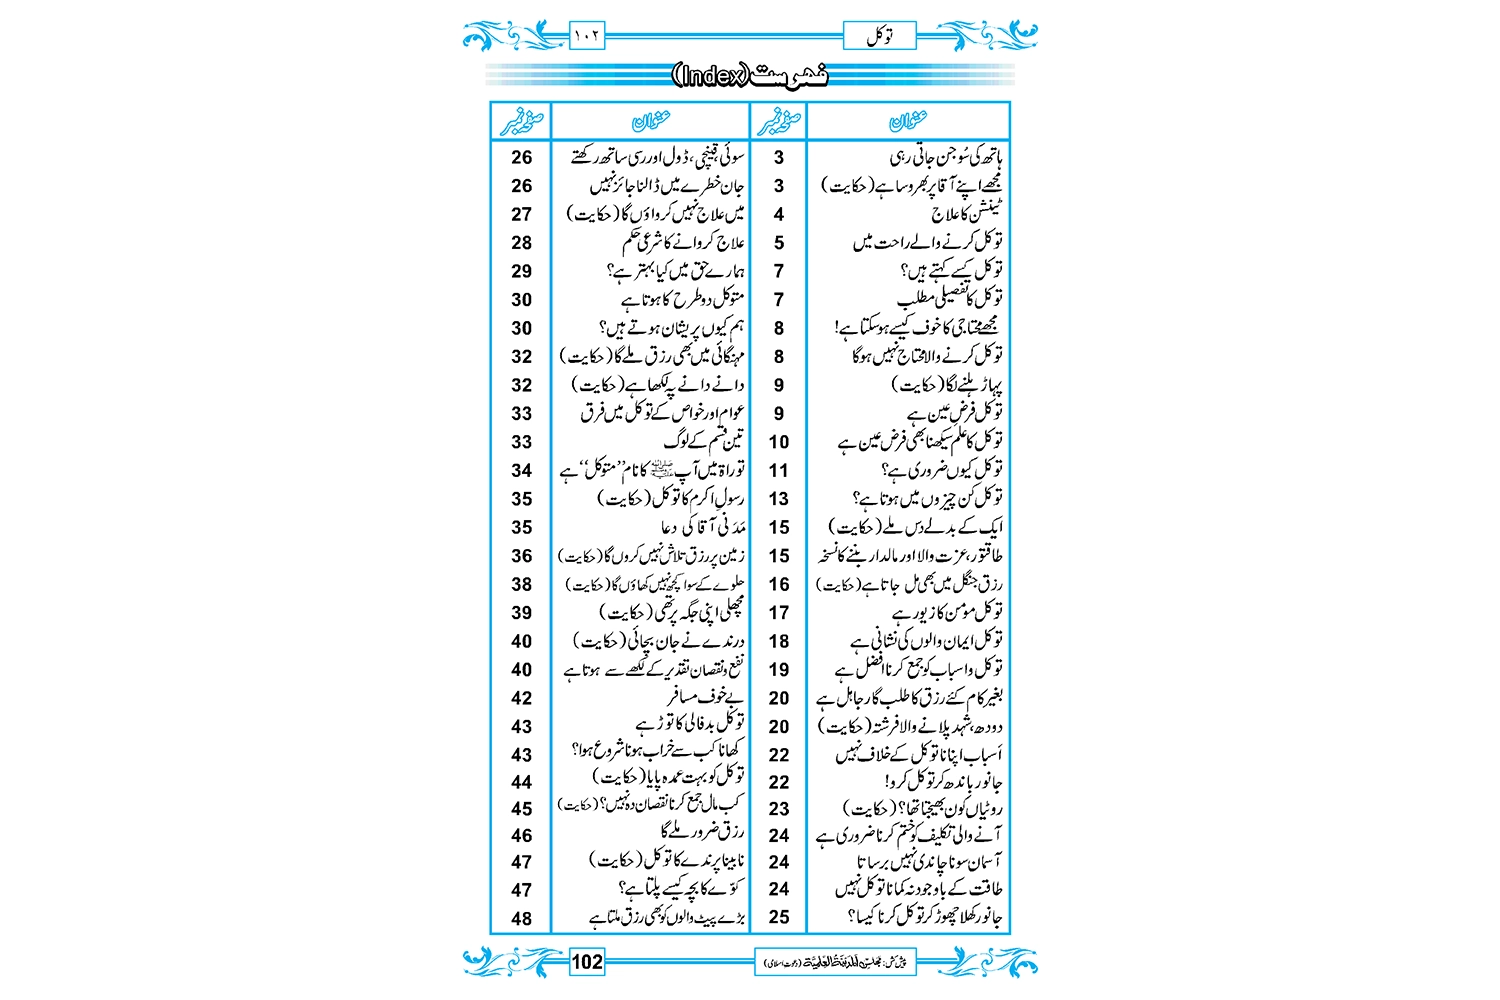 توکل ۱۰۲
فہرست (Index)
عنوان صفحہ نمبر عنوان صفحہ نمبر
ہاتھ کی سُوجن جاتی رہی 3 سوئی، قینچی، ڈول اور رسی ساتھ رکھتے 26
مجھے اپنے آقا پر بھروسا ہے (حکایت) 3 جان خطرے میں ڈالنا جائز نہیں 26
ٹینشن کا علاج 4 میں علاج نہیں کرواؤں گا (حکایت) 27
توکل کرنے والے راحت میں 5 علاج کروانے کا شرعی حکم 28
توکل کسے کہتے ہیں؟ 7 ہمارے حق میں کیا بہتر ہے؟ 29
توکل کا تفصیلی مطلب 7 متوکل دو طرح کا ہوتا ہے 30
مجھے محتاجی کا خوف کیسے ہوسکتا ہے! 8 ہم کیوں پریشان ہوتے ہیں؟ 30
توکل کرنے والا محتاج نہیں ہوگا 8 مہنگائی میں بھی رزق ملے گا (حکایت) 32
پہاڑ ہلنے لگا (حکایت) 9 دانے دانے پہ لکھا ہے (حکایت) 32
توکل فرضِ عین ہے 9 عوام اور خواص کے توکل میں فرق 33
توکل کا علم سیکھنا بھی فرض عین ہے 10 تین قسم کے لوگ 33
توکل کیوں ضروری ہے؟ 11 توراۃ میں آپ ﷺ کا نام ’’متوکل‘‘ ہے 34
توکل کن چیزوں میں ہوتا ہے؟ 13 رسولِ اکرم کا توکل (حکایت) 35
ایک کے بدلے دس ملے (حکایت) 15 مَدَنی آقا کی دعا 35
طاقتور، عزت والا اور مالدار بننے کا نسخہ 15 زمین پر رزق تلاش نہیں کروں گا (حکایت) 36
رزق جنگل میں بھی مل جاتا ہے (حکایت) 16 حلوے کے سوا کچھ نہیں کھاؤں گا (حکایت) 38
توکل مؤمن کا زیور ہے 17 مچھلی اپنی جگہ پر تھی (حکایت) 39
توکل ایمان والوں کی نشانی ہے 18 درندے نے جان بچائی (حکایت) 40
توکل و اسباب کو جمع کرنا افضل ہے 19 نفع و نقصان تقدیر کے لکھے سے ہوتا ہے 40
بغیر کام کئے رزق کا طلب گار جاہل ہے 20 بے خوف مسافر 42
دودھ، شہد پلانے والا فرشتہ (حکایت) 20 توکل بدفالی کا توڑ ہے 43
اَسباب اپنانا توکل کے خلاف نہیں 22 کھانا کب سے خراب ہونا شروع ہوا؟ 43
جانور باندھ کر توکل کرو! 22 توکل کو بہت عمدہ پایا (حکایت) 44
روٹیاں کون بھیجتا تھا؟ (حکایت) 23 کب مال جمع کرنا نقصان دہ نہیں؟ (حکایت) 45
آنے والی تکلیف کو ختم کرنا ضروری ہے 24 رزق ضرور ملے گا 46
آسمان سونا چاندی نہیں برساتا 24 نابینا پرندے کا توکل (حکایت) 47
طاقت کے باوجود نہ کمانا توکل نہیں 24 کوّے کا بچہ کیسے پلتا ہے؟ 47
جانور کھلا چھوڑ کر توکل کرنا کیسا؟ 25 بڑے پیٹ والوں کو بھی رزق ملتا ہے 48
پیش کش: مجلس المدینۃ العلمیۃ (دعوت اسلامی) 102